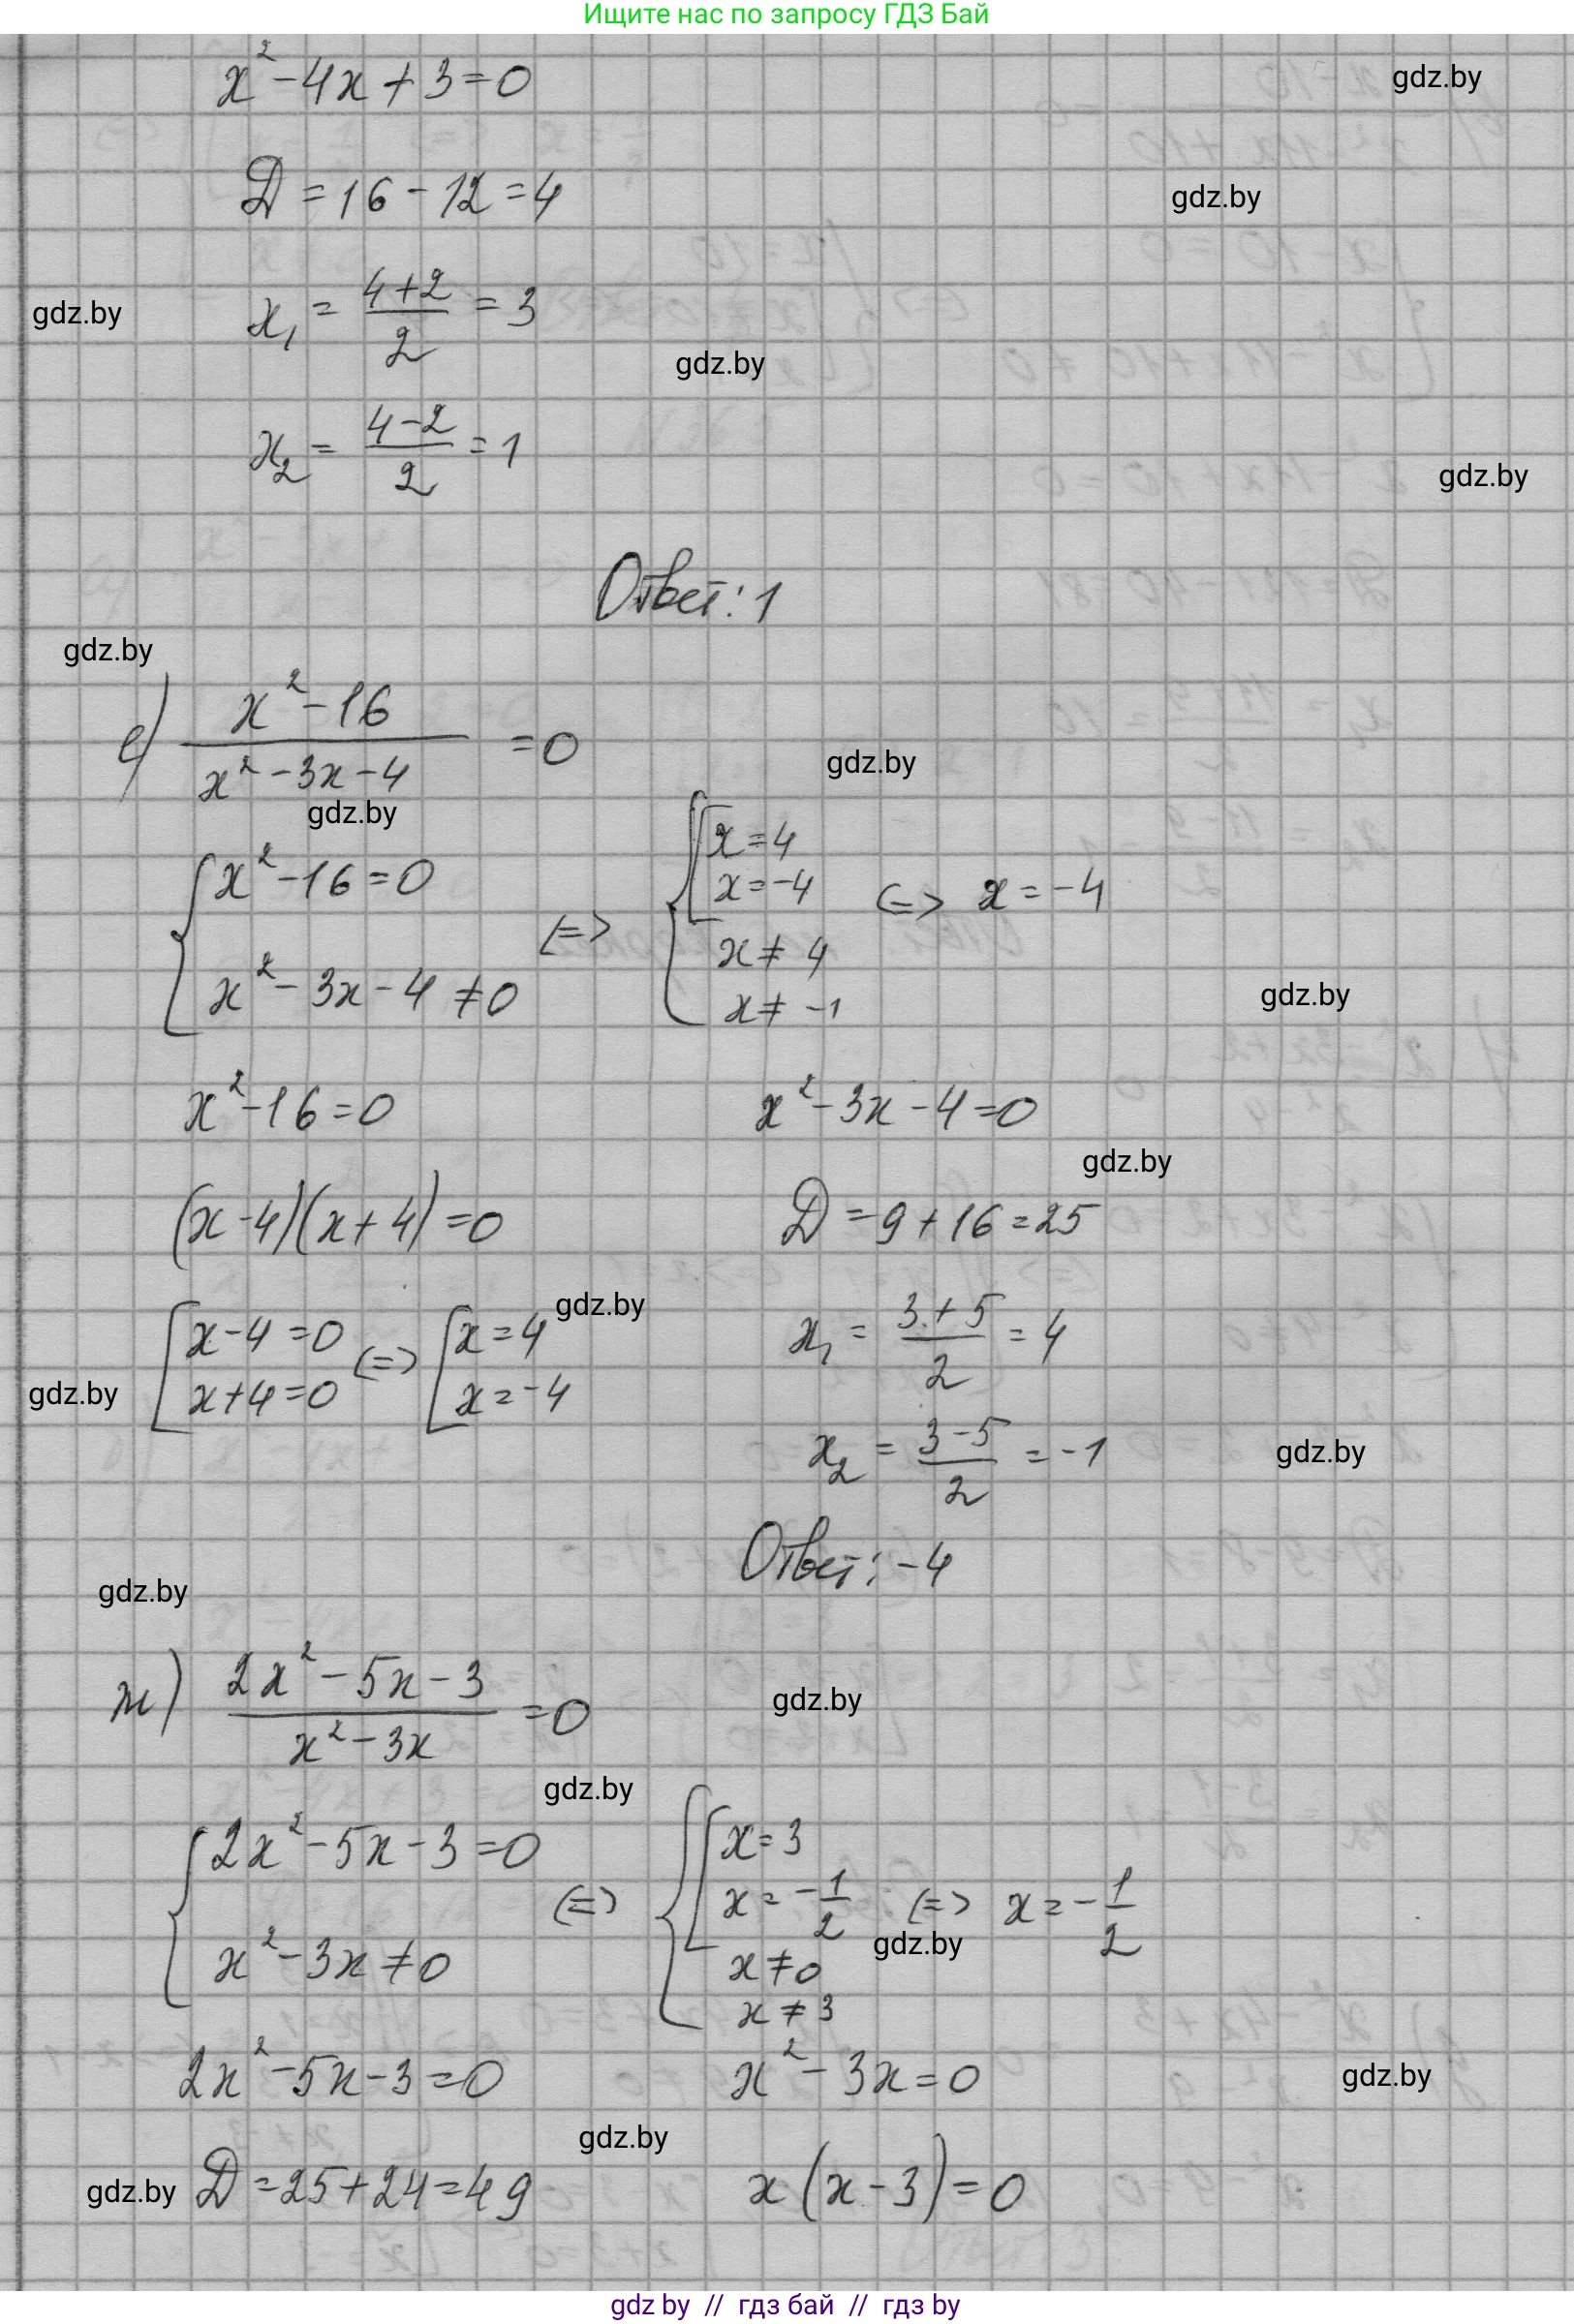 Ищите нас по запросу ГДЗ Бай
x² - 4x + 3 = 0
gdz.by
D = 16 - 12 = 4
gdz.by
x₁ = (4+2)/2 = 3
gdz.by
gdz.by
x₂ = (4-2)/2 = 1
gdz.by
Ответ: 1
gdz.by
е) (x² - 16)/(x² - 3x - 4) = 0
gdz.by
gdz.by
{ x² - 16 = 0
x² - 3x - 4 ≠ 0
<=>
{ [ x = 4
x = -4
x ≠ 4
x ≠ -1
<=> x = -4
gdz.by
x² - 16 = 0
x² - 3x - 4 = 0
gdz.by
(x - 4)(x + 4) = 0
D = 9 + 16 = 25
gdz.by
[ x - 4 = 0
x + 4 = 0
<=>
[ x = 4
x = -4
x₁ = (3+5)/2 = 4
gdz.by
x₂ = (3-5)/2 = -1
gdz.by
Ответ: -4
gdz.by
ж) (2x² - 5x - 3)/(x² - 3x) = 0
gdz.by
gdz.by
{ 2x² - 5x - 3 = 0
x² - 3x ≠ 0
<=>
{ [ x = 3
x = -1/2
x ≠ 0
x ≠ 3
<=> x = -1/2
gdz.by
2x² - 5x - 3 = 0
x² - 3x = 0
gdz.by
gdz.by
gdz.by
D = 25 + 24 = 49
x(x - 3) = 0
gdz by // гдз бай // гдз by